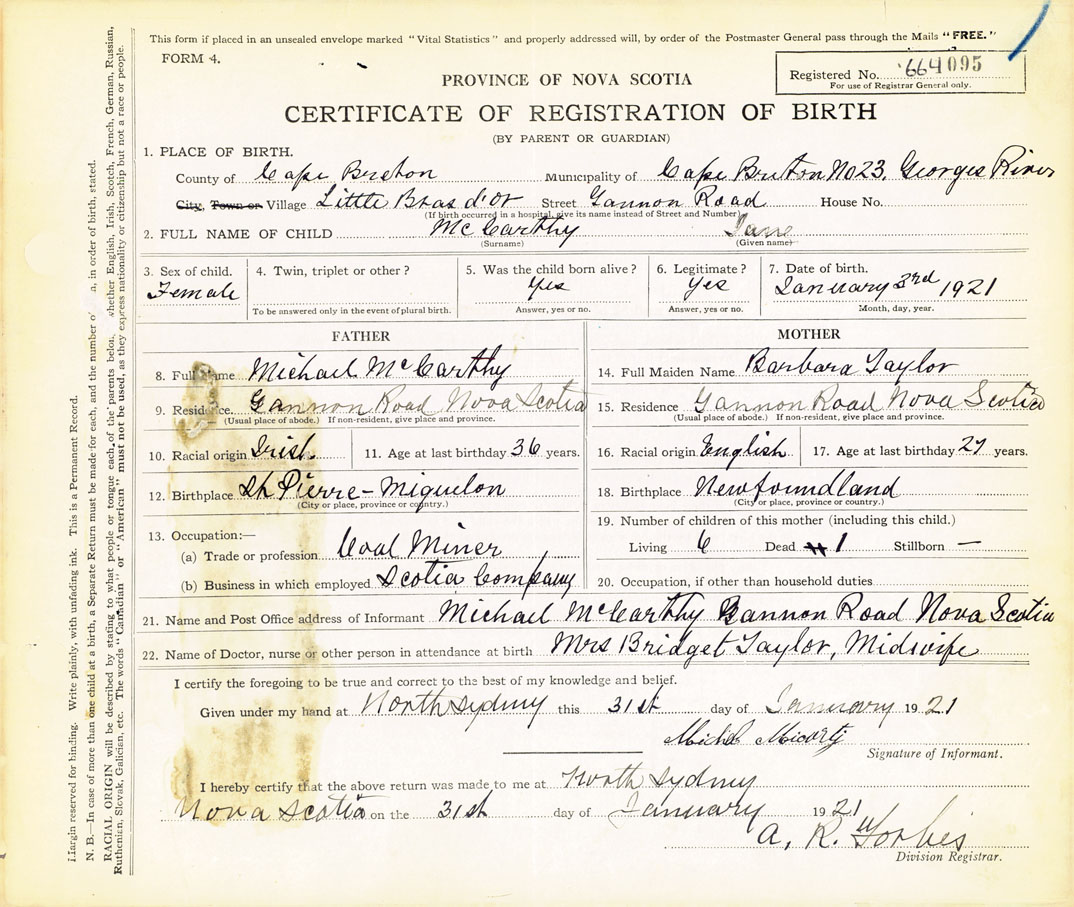 This form if placed in an unsealed envelope marked "Vital Statistics" and properly addressed will, by order of the Postmaster General pass through the Mails "FREE."
FORM 4.
Registered No. 664095
For use of Registrar General only.
PROVINCE OF NOVA SCOTIA
CERTIFICATE OF REGISTRATION OF BIRTH
(BY PARENT OR GUARDIAN)
1. PLACE OF BIRTH.
County of Cape Breton Municipality of Cape Breton No 23, Georges River
City, Town or Village Little Bras d'or Street Gannon Road House No.
(If birth occurred in a hospital, give its name instead of Street and Number)
2. FULL NAME OF CHILD McCarthy Jane
(Surname) (Given name)
3. Sex of child. 4. Twin, triplet or other? 5. Was the child born alive? 6. Legitimate? 7. Date of birth.
Female Yes Yes January 3rd 1921
To be answered only in the event of plural birth. Answer, yes or no. Answer, yes or no. Month, day, year.
FATHER
8. Full Name Michael McCarthy
9. Residence. Gannon Road Nova Scotia
(Usual place of abode.) If non-resident, give place and province.
10. Racial origin Irish 11. Age at last birthday 36 years.
12. Birthplace St Pierre-Miquelon
(City or place, province or country.)
13. Occupation:—
(a) Trade or profession Coal Miner
(b) Business in which employed Scotia Company
MOTHER
14. Full Maiden Name Barbara Taylor
15. Residence Gannon Road Nova Scotia
(Usual place of abode.) If non-resident, give place and province.
16. Racial origin English 17. Age at last birthday 27 years.
18. Birthplace Newfoundland
(City or place, province or country.)
19. Number of children of this mother (including this child.)
Living 6 Dead 1 Stillborn —
20. Occupation, if other than household duties
21. Name and Post Office address of Informant Michael McCarthy Gannon Road Nova Scotia
22. Name of Doctor, nurse or other person in attendance at birth Mrs Bridget Taylor, Midwife
I certify the foregoing to be true and correct to the best of my knowledge and belief.
Given under my hand at North Sydney this 31st day of January 1921
Signature of Informant.
I hereby certify that the above return was made to me at North Sydney
Nova Scotia on the 31st day of January 1921
A. R. Forbes
Division Registrar.
Margin reserved for binding. Write plainly, with unfading ink. This is a Permanent Record.
N. B.—In case of more than one child at a birth, a Separate Return must be made for each, and the number of a, in order of birth, stated.
RACIAL ORIGIN will be described by stating to what people or tongue each of the parents belong whether English, Irish, Scotch, French, German, Russian,
Ruthenian, Slovak, Galician, etc. The words "Canadian" or "American" must not be used, as they express nationality or citizenship but not a race or people.